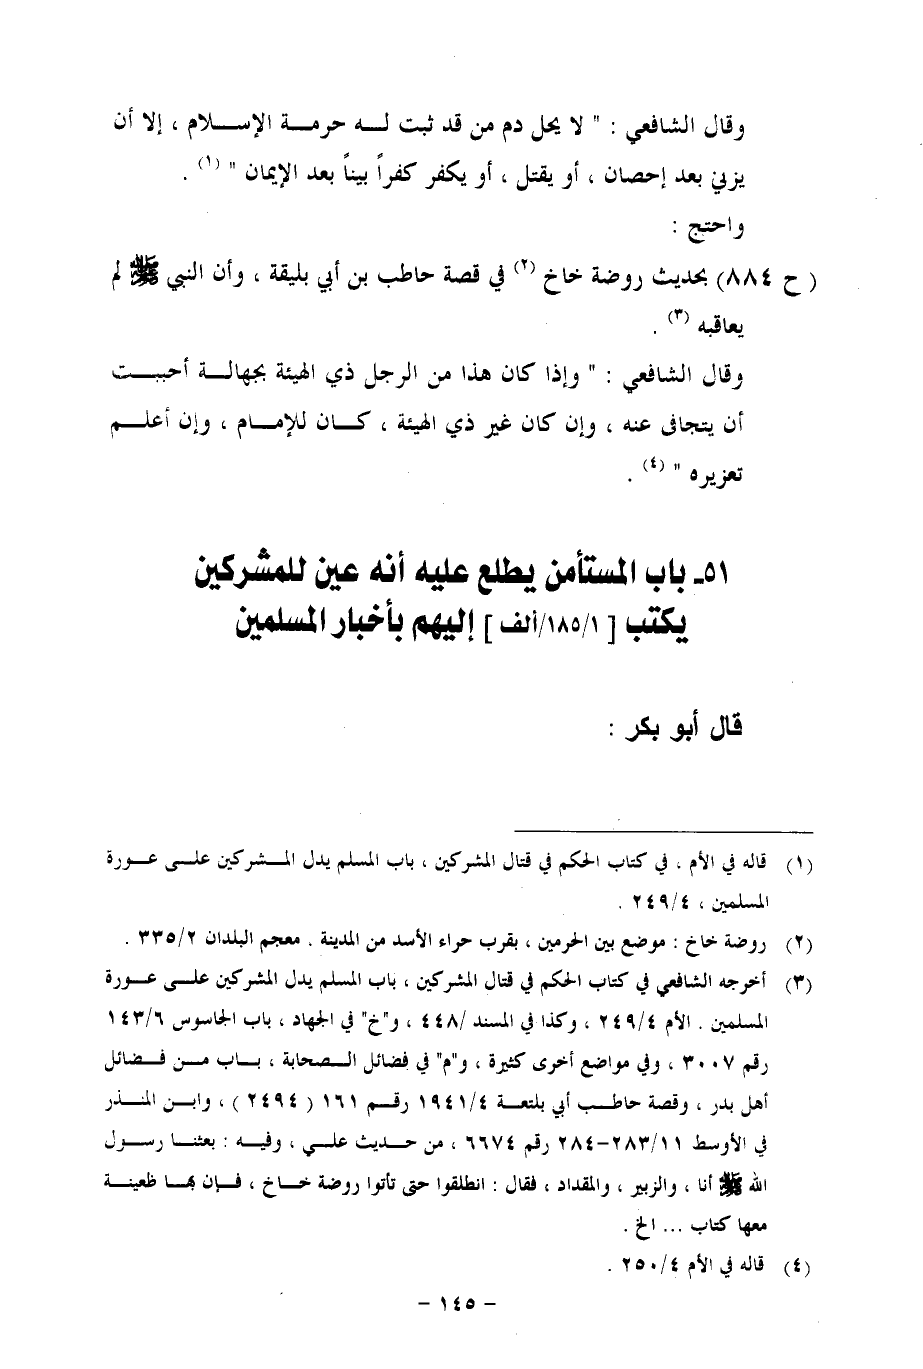 وقال الشافعي : " لا يحل دم من قد ثبت لـه حرمـة الإسـلام ، إلا أن
يزني بعد إحصان ، أو يقتل ، أو يكفر كفراً بيناً بعد الإيمان " (١) .
واحتج :
( ح ٨٨٤) بحديث روضة خاخ (٢) في قصة حاطب بن أبي بليقة ، وأن النبي ﷺ لم
يعاقبه (٣) .
وقال الشافعي : " وإذا كان هذا من الرجل ذي الهيئة بجهالـة أحببـت
أن يتجافى عنه ، وإن كان غير ذي الهيئة ، كـان للإمـام ، وإن أعلـم
تعزيره " (٤) .
٥١ـ باب المستأمن يطلع عليه أنه عين للمشركين
يكتب [ ١٨٥/١/ألف ] إليهم بأخبار المسلمين
قال أبو بكر :
(١) قاله في الأم ، في كتاب الحكم في قتال المشركين ، باب المسلم يدل المـشركين علـى عـورة
المسلمين ، ٢٤٩/٤ .
(٢) روضة خاخ : موضع بين الحرمين ، بقرب حراء الأسد من المدينة . معجم البلدان ٣٣٥/٢ .
(٣) أخرجه الشافعي في كتاب الحكم في قتال المشركين ، باب المسلم يدل المشركين علـى عـورة
المسلمين . الأم ٢٤٩/٤ ، وكذا في المسند /٤٤٨ ، و"خ" في الجهاد ، باب الجاسوس ١٤٣/٦
رقم ٣٠٠٧ ، وفي مواضع أخرى كثيرة ، و"م" في فضائل الـصحابة ، بـاب مـن فـضائل
أهل بدر ، وقصة حاطـب أبي بلتعـة ١٩٤١/٤ رقـم ١٦١ ( ٢٤٩٤ ) ، وابـن المنـذر
في الأوسط ٢٨٣/١١-٢٨٤ رقم ٦٦٧٤ ، من حـديث علـي ، وفيـه : بعثنـا رسـول
الله ﷺ أنا ، والزبير ، والمقداد ، فقال : انطلقوا حتى تأتوا روضة خـاخ ، فـإن بهـا ظعينـة
معها كتاب ... الخ .
(٤) قاله في الأم ٢٥٠/٤ .
- ١٤٥ -